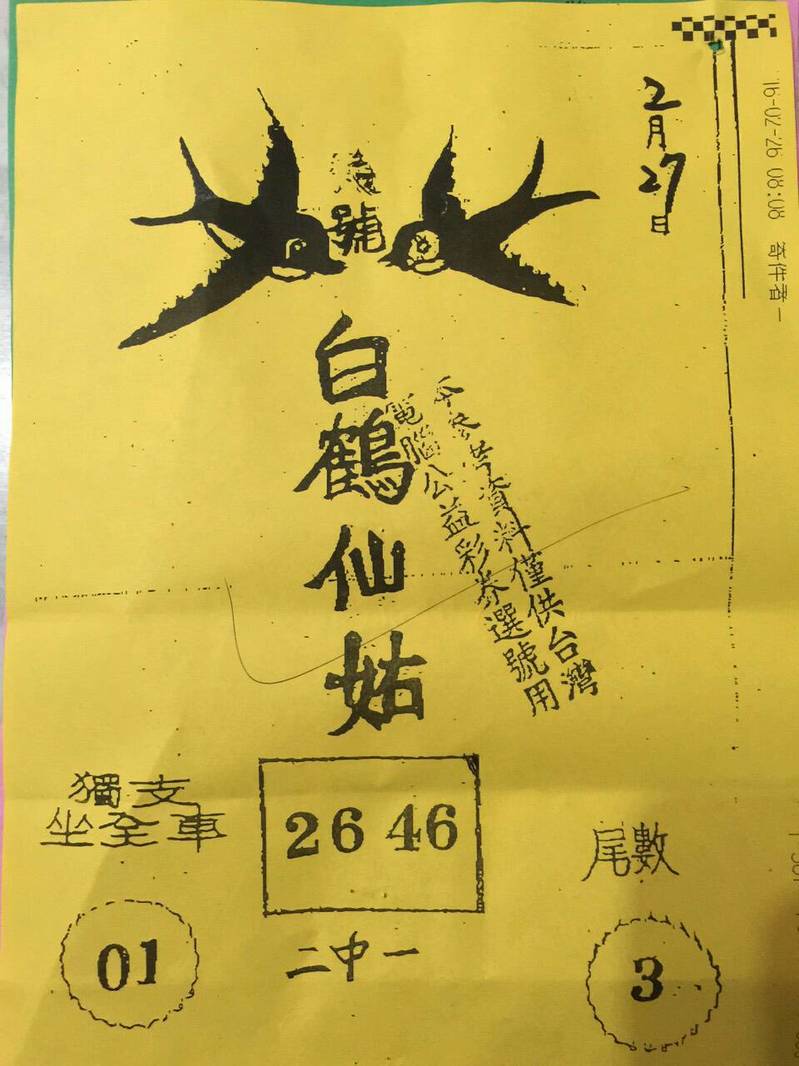 2月27日
16-02-26 08:08 寄件者－
號
白鶴仙姑
本參考資料僅供台灣
電腦公益彩券選號用
獨支
坐全車
01
26 46
二中一
尾數
3